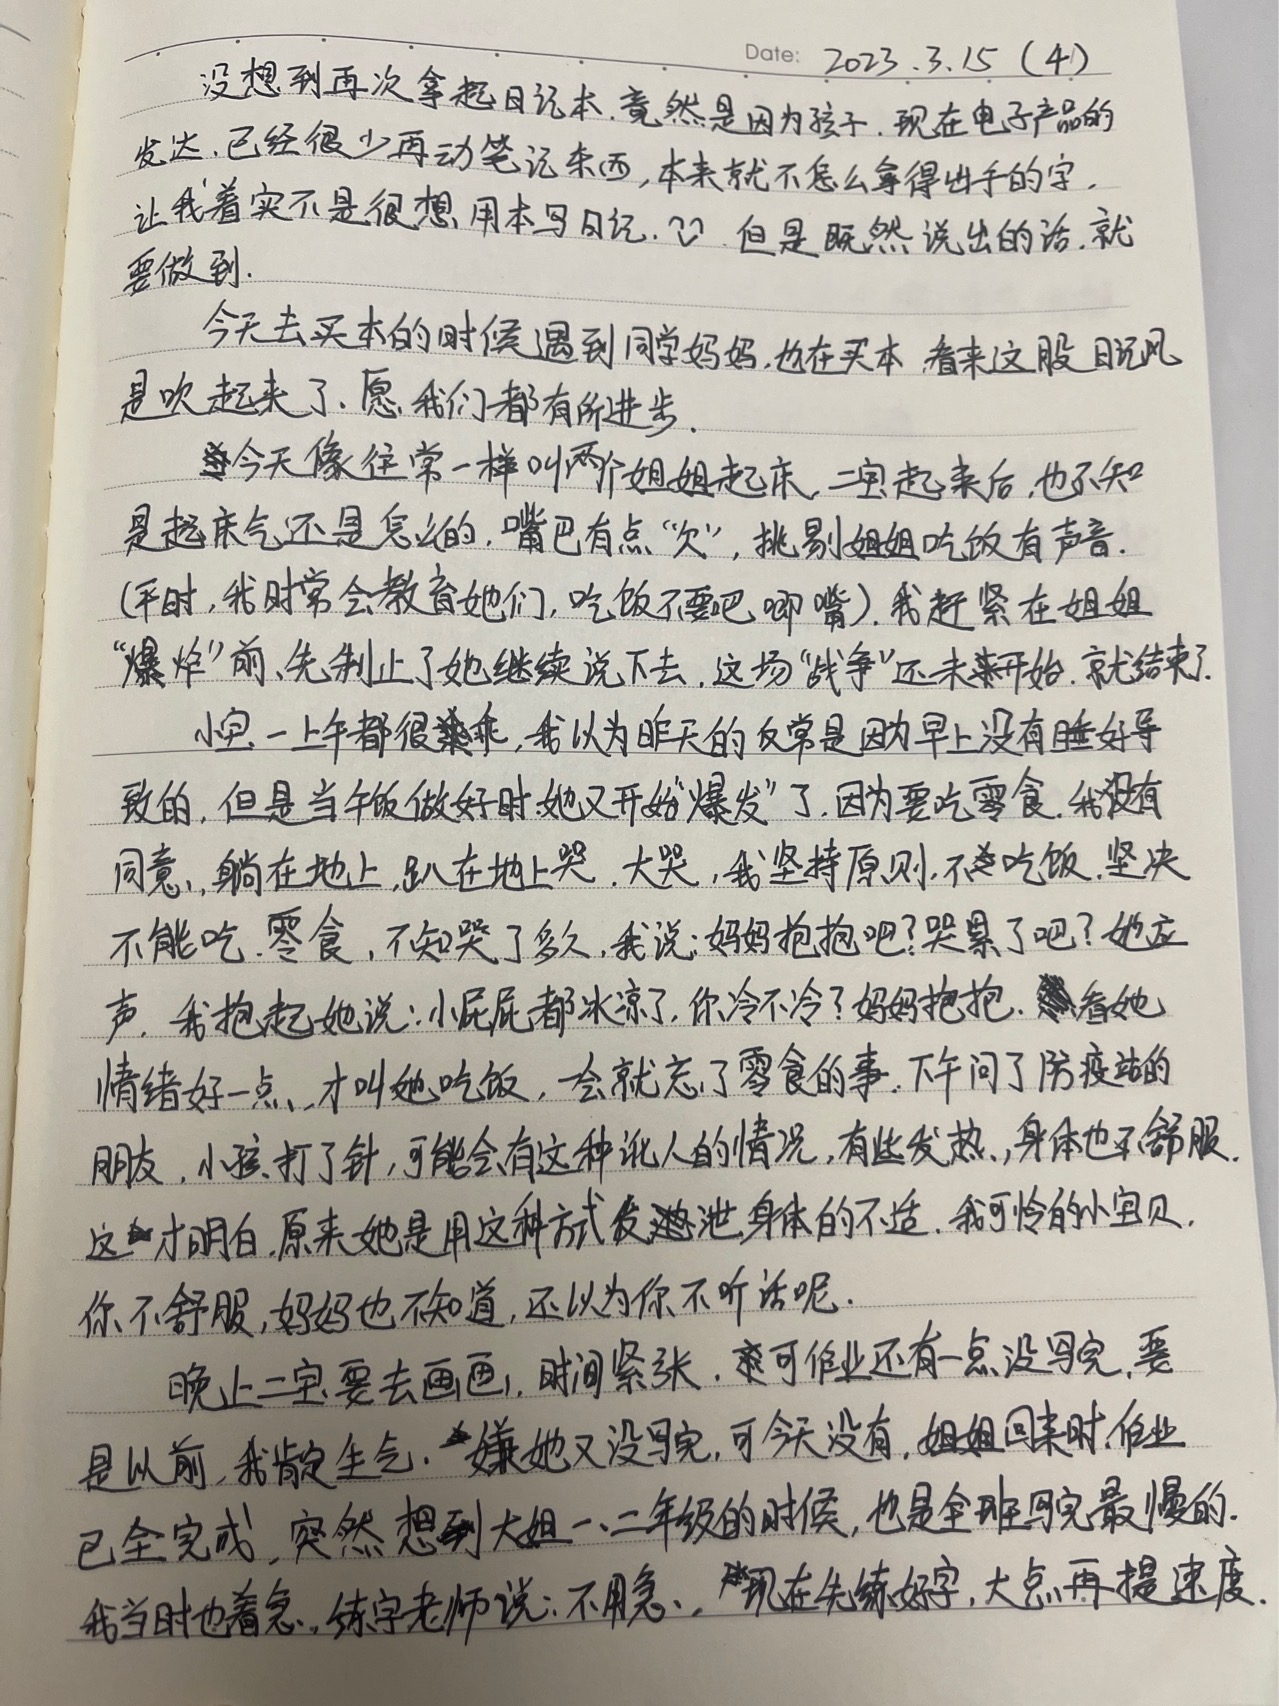 Date: 2023.3.15 (4)
没想到再次拿起日记本.竟然是因为孩子.现在电子产品的
发达.已经很少再动笔记东西,本来就不怎么拿得出手的字.
让我着实不是很想用本写日记. 但是既然说出的话.就
要做到.
今天去买本的时候遇到同学妈妈.也在买本.看来这股日记风
是吹起来了、愿我们都有所进步.
今天像往常一样叫两个姐姐起床,二宝起来后,也不知
是起床气还是怎么的,嘴巴有点“欠”,挑剔姐姐吃饭有声音.
(平时,我时常会教育她们,吃饭不要吧唧嘴).我赶紧在姐姐
“爆炸”前、先制止了她继续说下去.这场“战争”还未开始.就结束了.
小宝一上午都很乖,我以为昨天的反常是因为早上没有睡好导
致的,但是当午饭做好时.她又开始“爆发”了.因为要吃零食.我没有
同意,躺在地上,趴在地上哭.大哭,我坚持原则.不吃饭.坚决
不能吃零食,不知哭了多久,我说:妈妈抱抱吧?哭累了吧?她应
声.我抱起她说:小屁屁都冰凉了.你冷不冷?妈妈抱抱.看她
情绪好一点,才叫她吃饭,一会就忘了零食的事.下午问了防疫站的
朋友,小孩打了针,可能会有这种讹人的情况,有些发热,身体也不舒服.
这才明白.原来她是用这种方式发泄身体的不适.我可怜的小宝贝.
你不舒服,妈妈也不知道,还以为你不听话呢.
晚上二宝要去画画,时间紧张.可作业还有一点没写完,要
是以前,我肯定生气.嫌她又没写完,可今天没有,姐姐回来时.作业
已全完成,突然想到大姐一、二年级的时候,也是全班写完最慢的.
我当时也着急,练字老师说:不用急,现在先练好字,大点再提速度.